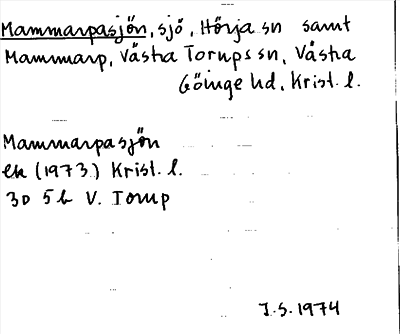 Mammarpasjön, sjö, Hörja sn samt
Mammarp, Västra Torups sn, Västra
Göinge hd, Krist. l.
Mammarpasjön
ek (1973) Krist. l.
3D 5b V. Torup
J.S. 1974